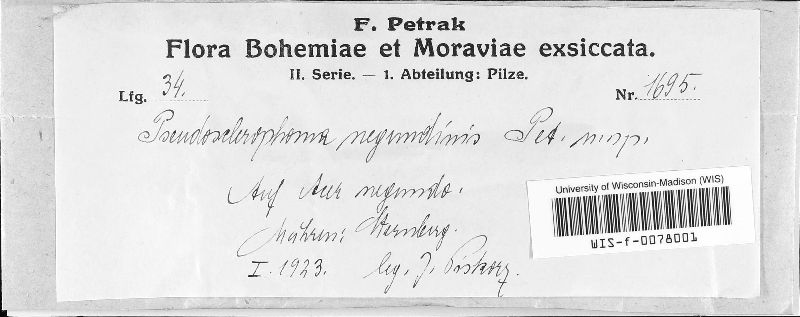 F. Petrak
Flora Bohemiae et Moraviae exsiccata.
II. Serie. — 1. Abteilung: Pilze.
Lfg. 34. Nr. 1695.
Pseudosclerophoma negundinis Pet. n. sp.
Auf Acer negundo.
Mähren: Sternberg.
I. 1923. leg. J. Piskorz.
University of Wisconsin-Madison (WIS)
WIS-f-0078001